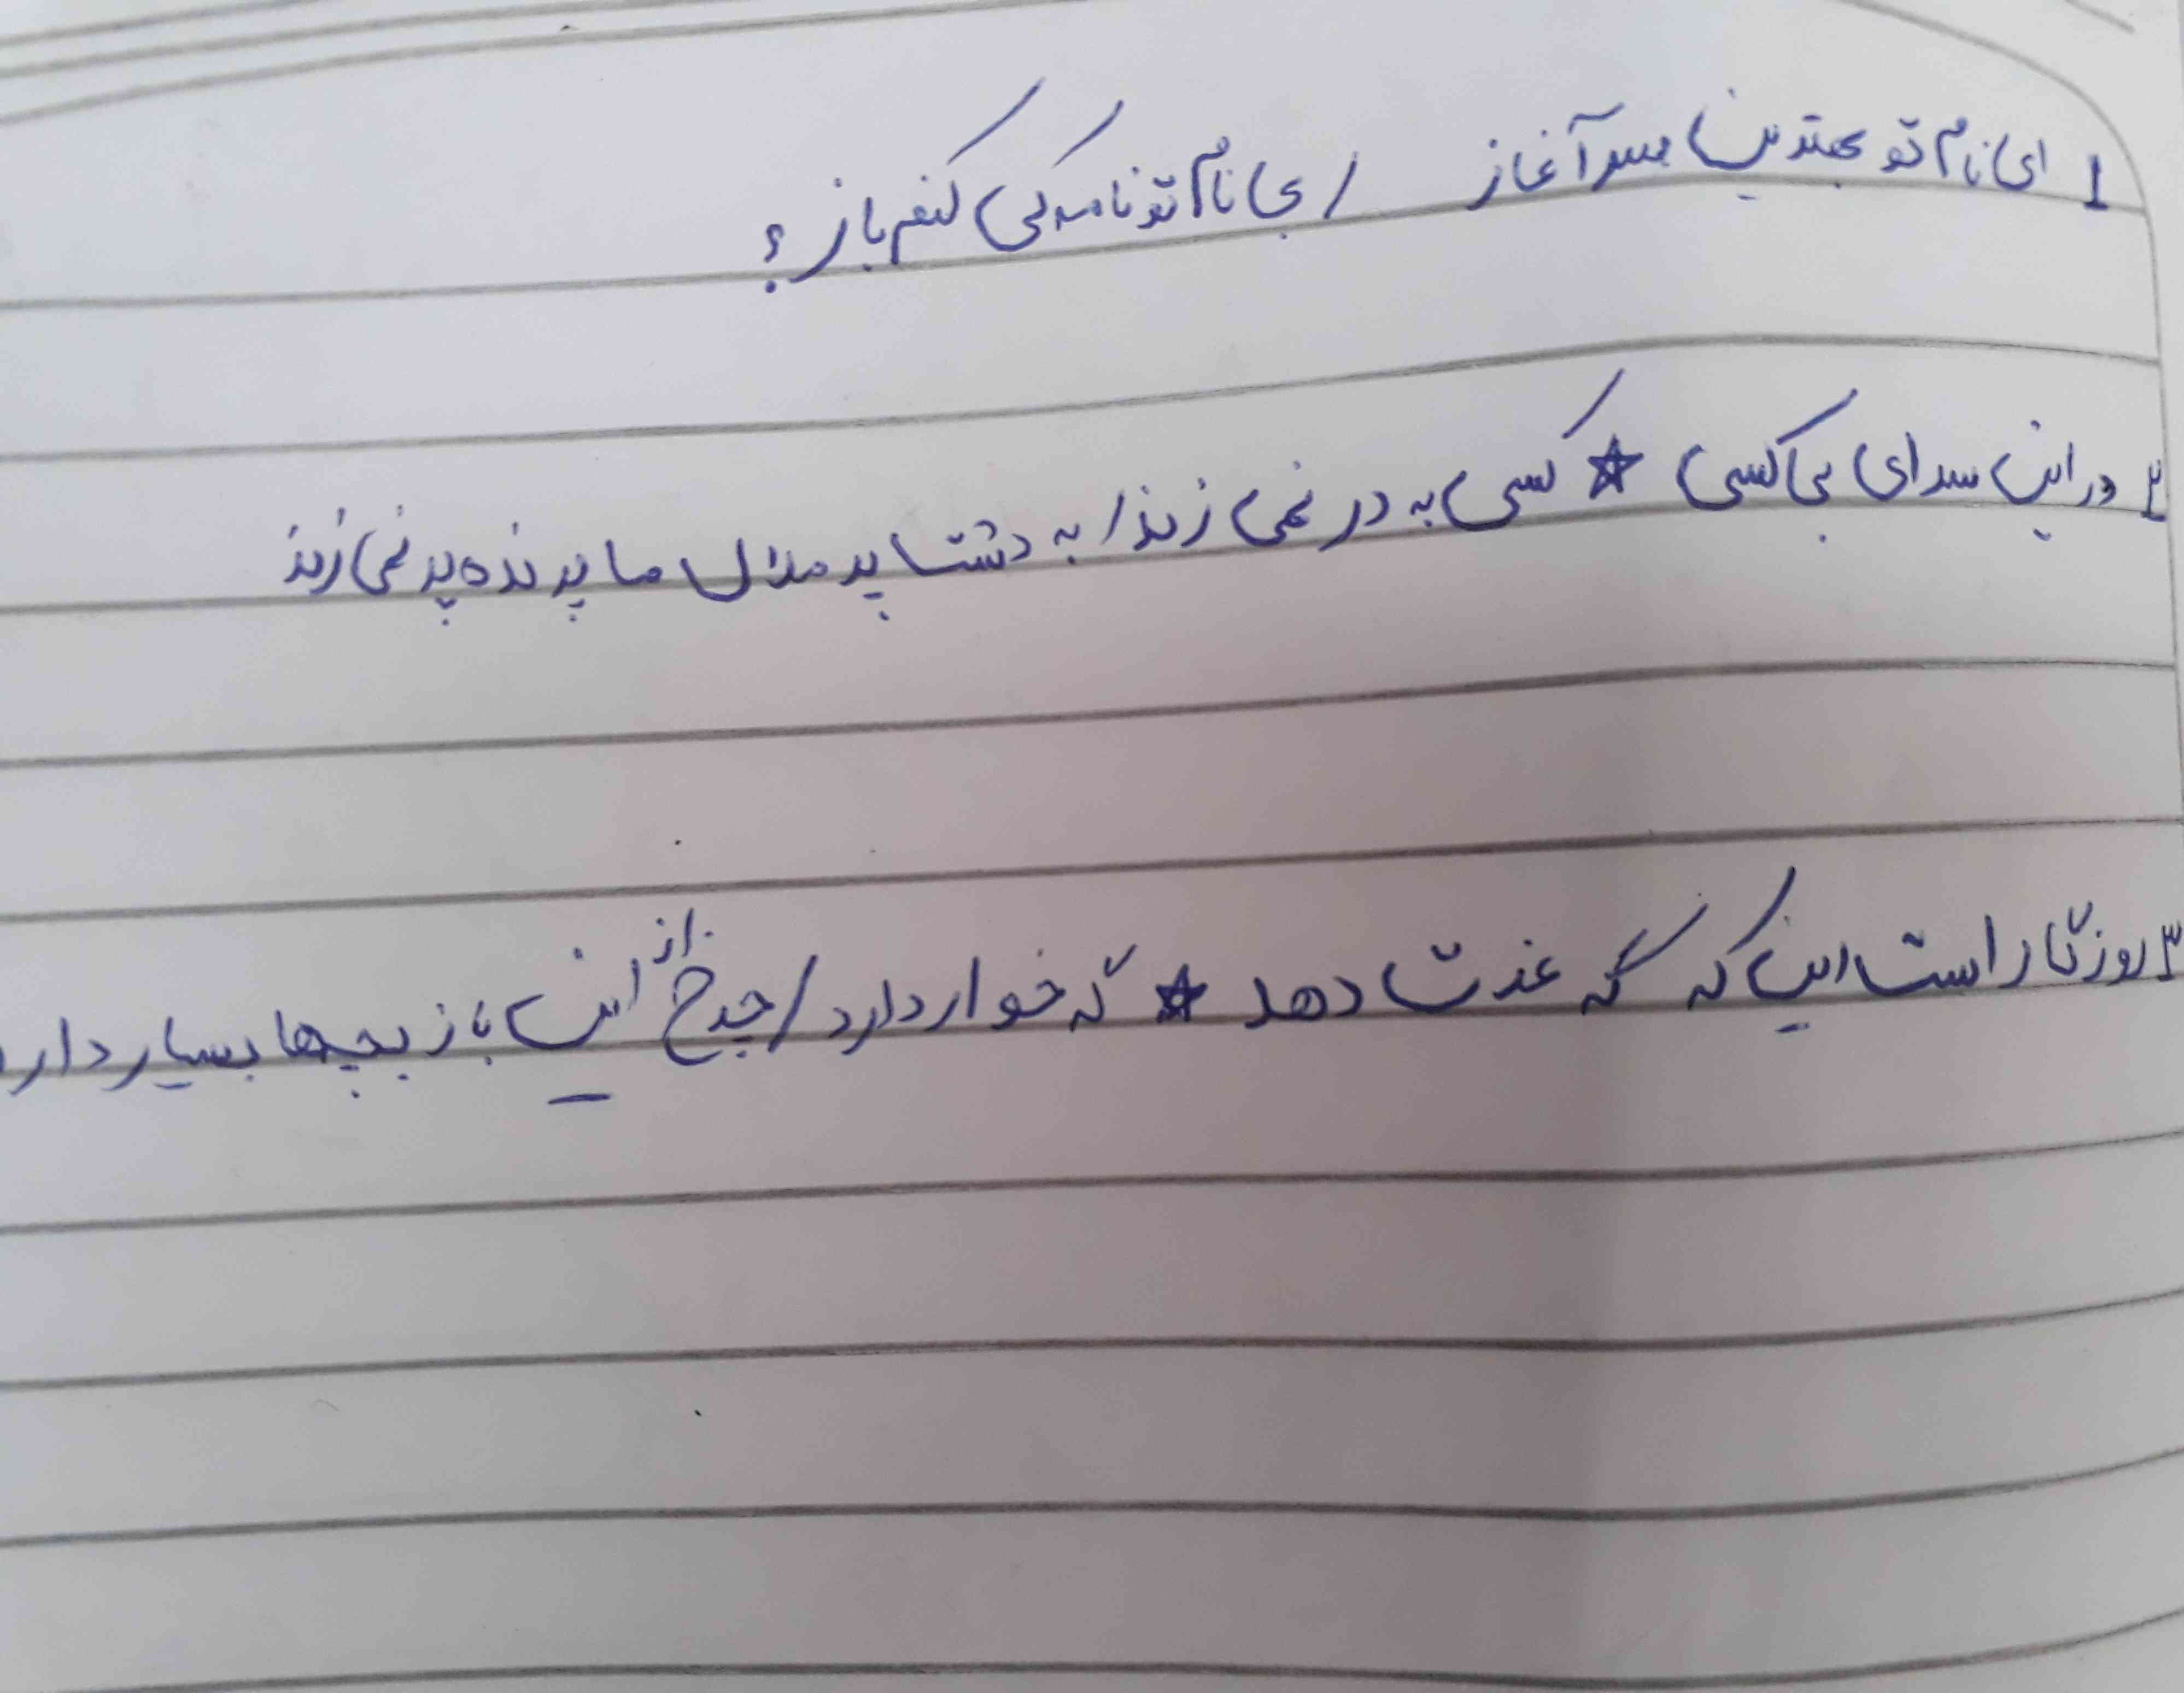 1 ای نام تو بهترین سرآغاز / بی نام تو نامه کی کنم باز؟
۲ در این سرای بی کسی ☆ کسی به در نمی زند / به دشت پر ملال ما پرنده پر نمی زند
۳ روزگار است این که گه عزت دهد ☆ گه خوار دارد / چرخ از این بازیچه‌ها بسیار دارد